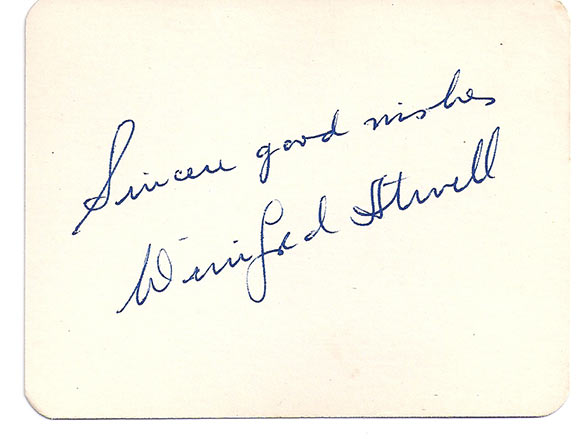 Sincere good wishes
Winifred Atwell